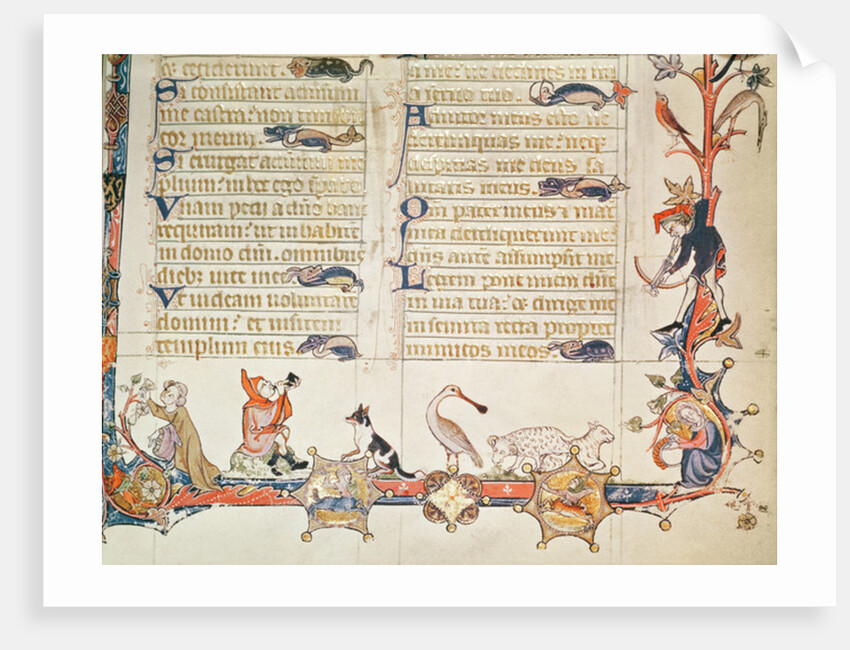 ceciderunt.
Si consistant
me castra: non
cor meum.
Si exurgat me
plium: in hoc ego
Unam petii a dno hanc
requiram: ut inhabite
in domo dni. omnibus
diebz uite mee
Ut uideam uoluntate
domini: et uisitem
templum eius
a me: ne declines in ira
a seruo tuo.
Adiutor meus esto ne
derelinquas me: neqz
despicias me deus sa
lutaris meus.
Qm pater meus & mat
mea dereliquerunt me:
dns aute assumpsit me
Legem pone michi dne
in uia tua: & dirige me
in semita recta propter
inimicos meos